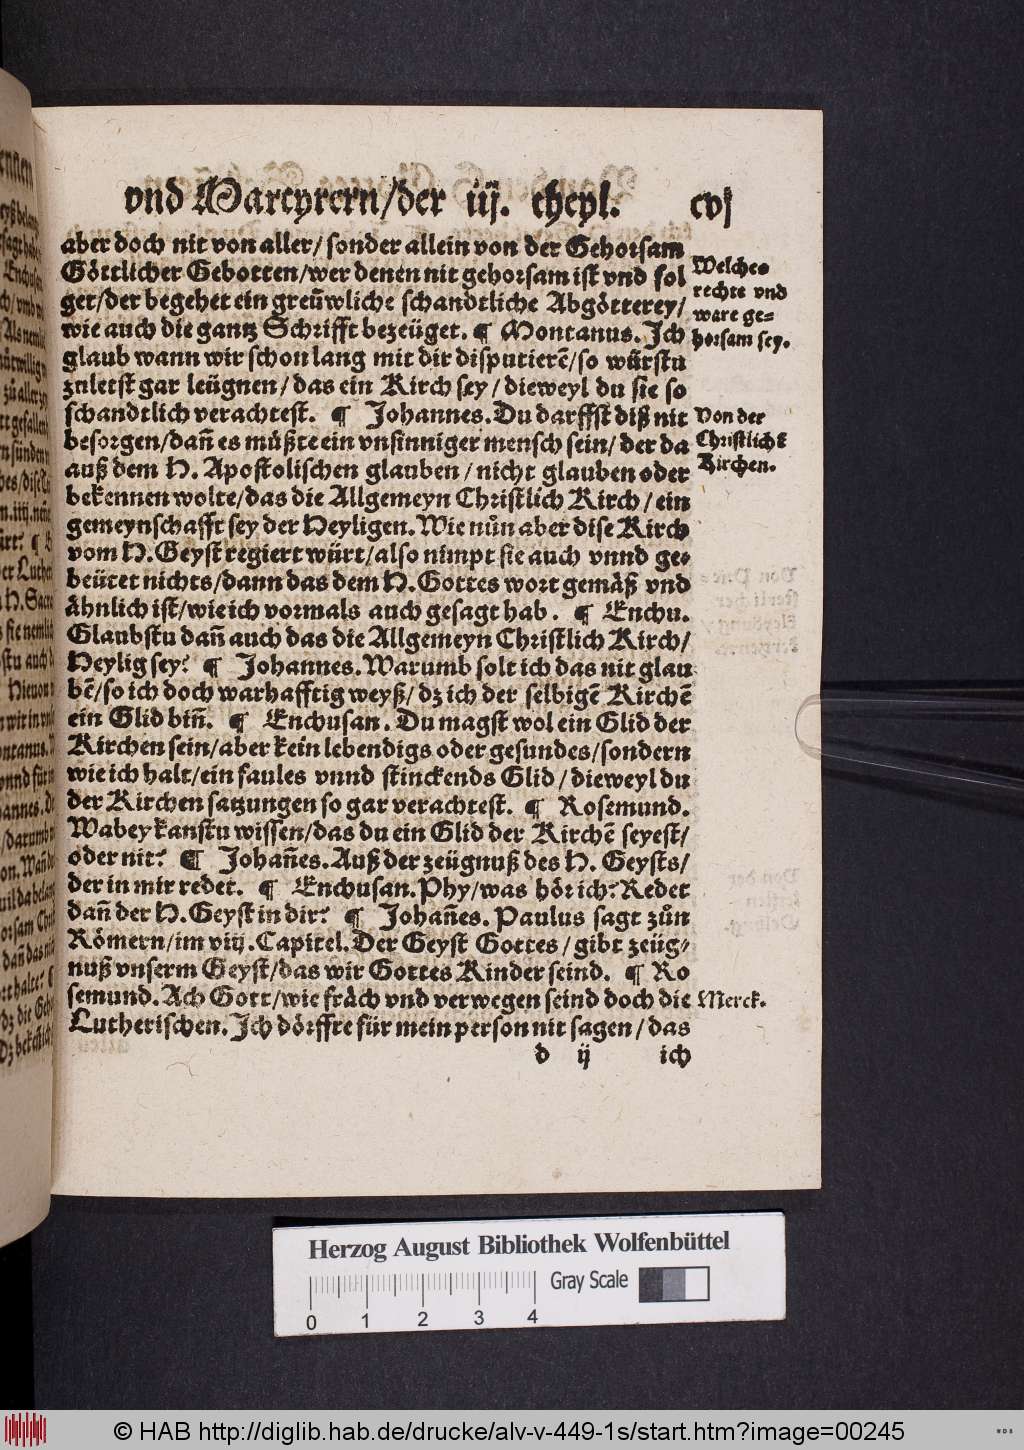 vnd Martyrern/der iij. theyl. cvj
aber doch nit von aller/ sonder allein von der Gehorsam
Göttlicher Gebotten/wer denen nit gehorsam ist vnd fol
get/der begehet ein greüwliche schandtliche Abgötterey/
wie auch die gantz Schrifft bezeüget. ¶ Montanus. Ich
glaub wann wir schon lang mit dir disputierē/so würstu
zuletst gar leügnen/das ein Kirch sey/dieweyl du sie so
schandtlich verachtest. ¶ Johannes. Du darffst diß nit
besorgen/dañ es müßte ein vnsinniger mensch sein/ der da
auß dem H. Apostolischen glauben/nicht glauben oder
bekennen wolte/das die Allgemeyn Christlich Kirch/ein
gemeynschafft sey der Heyligen. Wie nůn aber dise Kirch
vom H. Geyst regiert würt/also nimpt sie auch vnnd ge-
beütet nichts/dann das dem H. Gottes wort gemäß vnd
ähnlich ist/wie ich vormals auch gesagt hab. ¶ Enchu.
Glaubstu dañ auch das die Allgemeyn Christlich Kirch/
Heylig sey? ¶ Johannes. Warumb solt ich das nit glau
bē/so ich doch warhafftig weyß/dz ich der selbigē Kirchē
ein Glid biñ. ¶ Enchusan. Du magst wol ein Glid der
Kirchen sein/aber kein lebendigs oder gesundes/sondern
wie ich halt/ein faules vnnd stinckends Glid/dieweyl du
der Kirchen satzungen so gar verachtest. ¶ Rosemund.
Wabey kanstu wissen/das du ein Glid der Kirchē seyest/
oder nit? ¶ Johañes. Auß der zeügnuß des H. Geysts/
der in mir redet. ¶ Enchusan. Phy/was hör ich? Redet
dañ der H. Geyst in dir? ¶ Johañes. Paulus sagt zůn
Römern/im viij. Capitel. Der Geyst Gottes/gibt zeüg-
nuß vnserm Geyst/das wir Gottes Kinder seind. ¶ Ro
semund. Ach Gott/wie fräch vnd verwegen seind doch die
Lutherischen. Ich dörffte für mein person nit sagen/das
d ij ich
Welches
rechte vnd
ware ge-
horsam sey.
Von der
Christlichē
Kirchen.
Merck.
Herzog August Bibliothek Wolfenbüttel
Gray Scale
0 1 2 3 4
© HAB http://diglib.hab.de/drucke/alv-v-449-1s/start.htm?image=00245